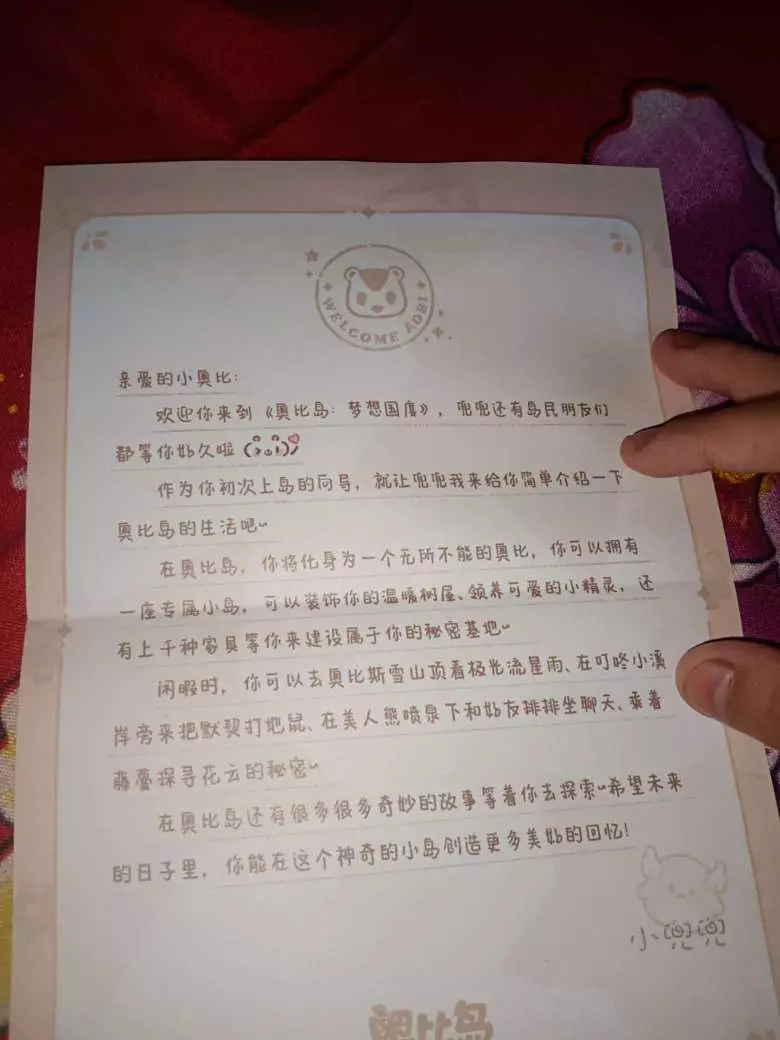 WELCOME AOBI
亲爱的小奥比:
欢迎你来到《奥比岛: 梦想国度》, 兜兜还有岛民朋友们
都等你好久啦
作为你初次上岛的向导, 就让兜兜我来给你简单介绍一下
奥比岛的生活吧~
在奥比岛, 你将化身为一个无所不能的奥比, 你可以拥有
一座专属小岛, 可以装饰你的温暖树屋、领养可爱的小精灵, 还
有上千种家具等你来建设属于你的秘密基地~
闲暇时, 你可以去奥比斯雪山顶看极光流星雨、在叮咚小溪
岸旁来把默契打地鼠、在美人熊喷泉下和好友排排坐聊天、乘着
藤蔓探寻花云的秘密~
在奥比岛还有很多很多奇妙的故事等着你去探索~希望未来
的日子里, 你能在这个神奇的小岛创造更多美好的回忆!
小兜兜
奥比岛